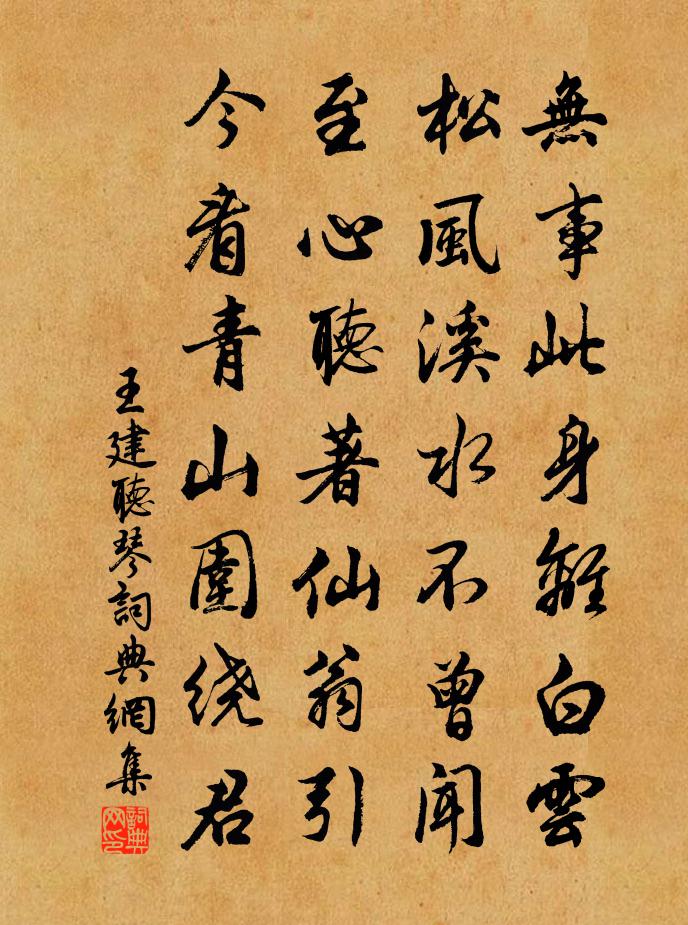 無事此身離白雲
松風溪水不曾聞
至心聽著仙翁引
今看青山圍繞君
王建聽琴詞典網集
詞典
网印